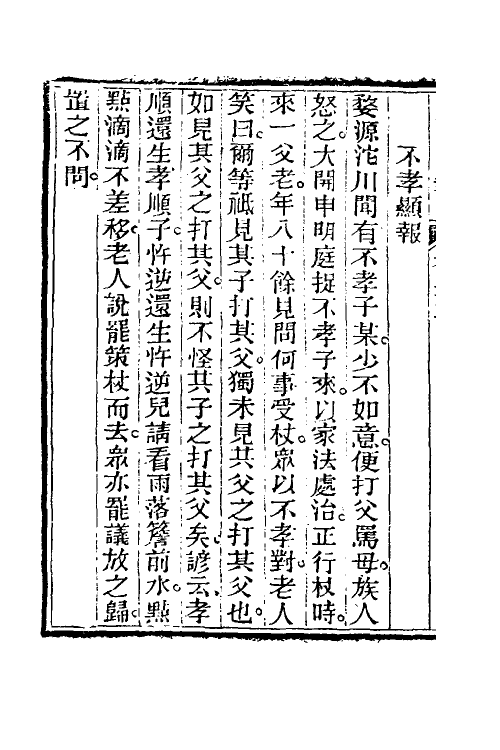 不孝顯報
婺源沱川聞有不孝子某少不如意。便打父罵母。族人
怒之。大開申明庭捉不孝子來。以家法處治。正行杖時。
來一父老。年八十餘見問何事受杖。眾以不孝對。老人
笑曰。爾等祗見其子打其父。獨未見其父之打其父也。
如見其父之打其父。則不怪其子之打其父矣。諺云孝
順還生孝順子。忤逆還生忤逆兒請看雨落簷前水。點
點滴滴不差移。老人說罷策杖而去。眾亦罷議放之歸。
置之不問。